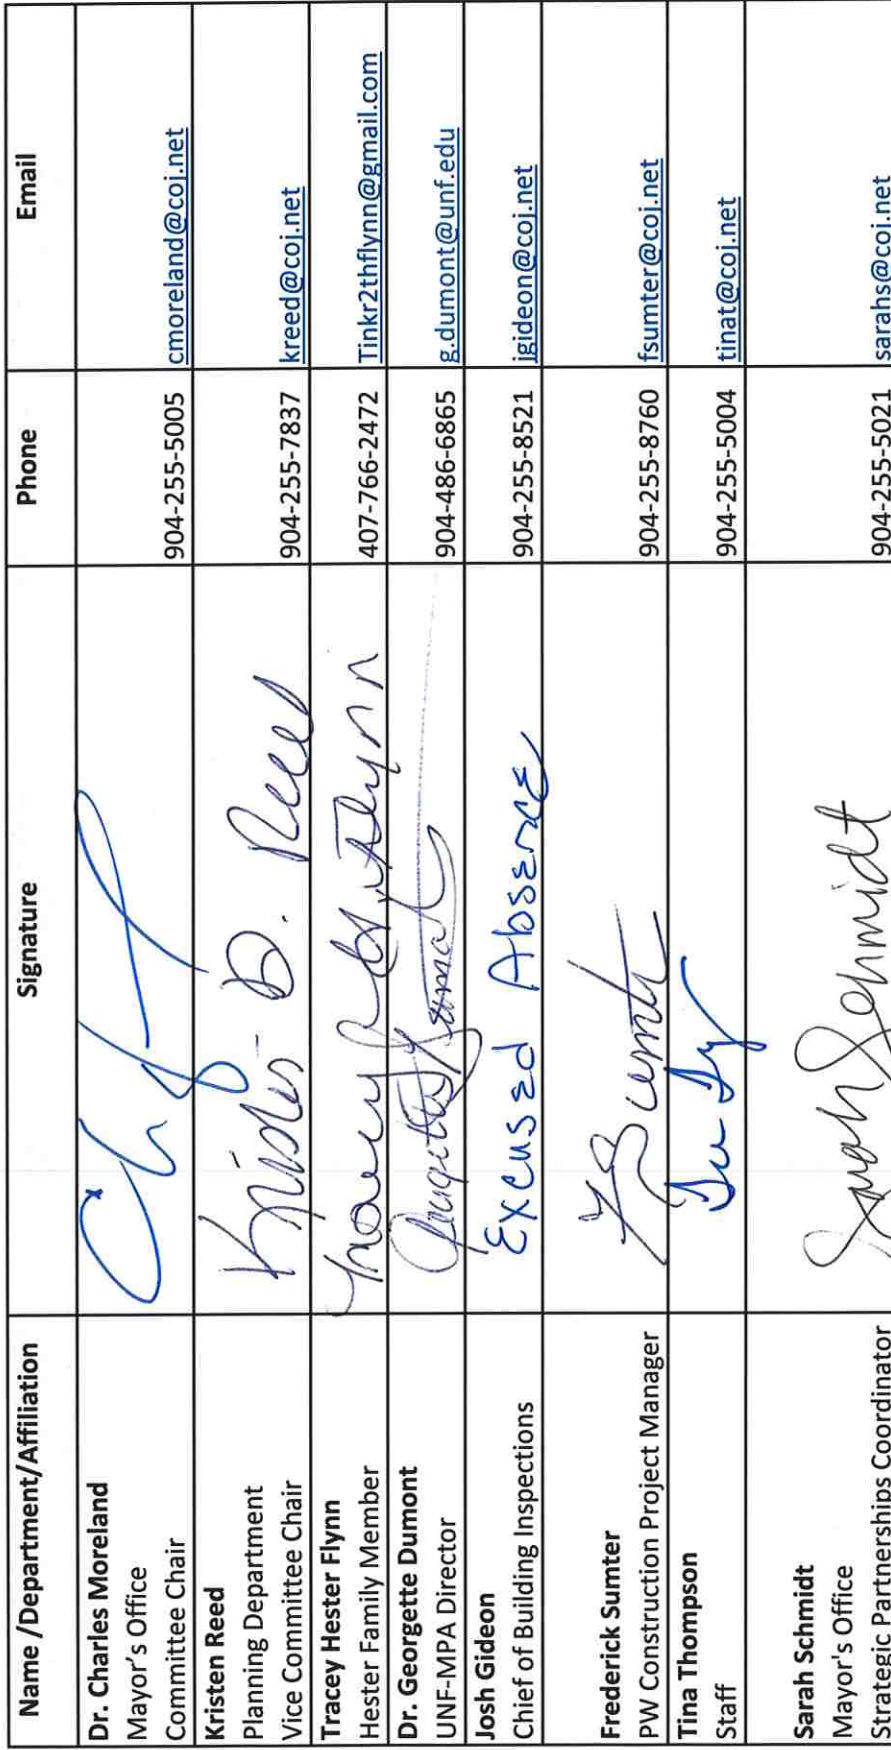 Name /Department/Affiliation Signature Phone Email
Dr. Charles Moreland
Mayor's Office
Committee Chair 904-255-5005 cmoreland@coj.net
Kristen Reed
Planning Department
Vice Committee Chair Kristen D. Reed 904-255-7837 kreed@coj.net
Tracey Hester Flynn
Hester Family Member Tracey H. Flynn 407-766-2472 Tinkr2thflynn@gmail.com
Dr. Georgette Dumont
UNF-MPA Director Georgette Dumont 904-486-6865 g.dumont@unf.edu
Josh Gideon
Chief of Building Inspections Excused Absence 904-255-8521 jgideon@coj.net
Frederick Sumter
PW Construction Project Manager F Sumter 904-255-8760 fsumter@coj.net
Tina Thompson
Staff 904-255-5004 tinat@coj.net
Sarah Schmidt
Mayor's Office
Strategic Partnerships Coordinator Sarah Schmidt 904-255-5021 sarahs@coj.net